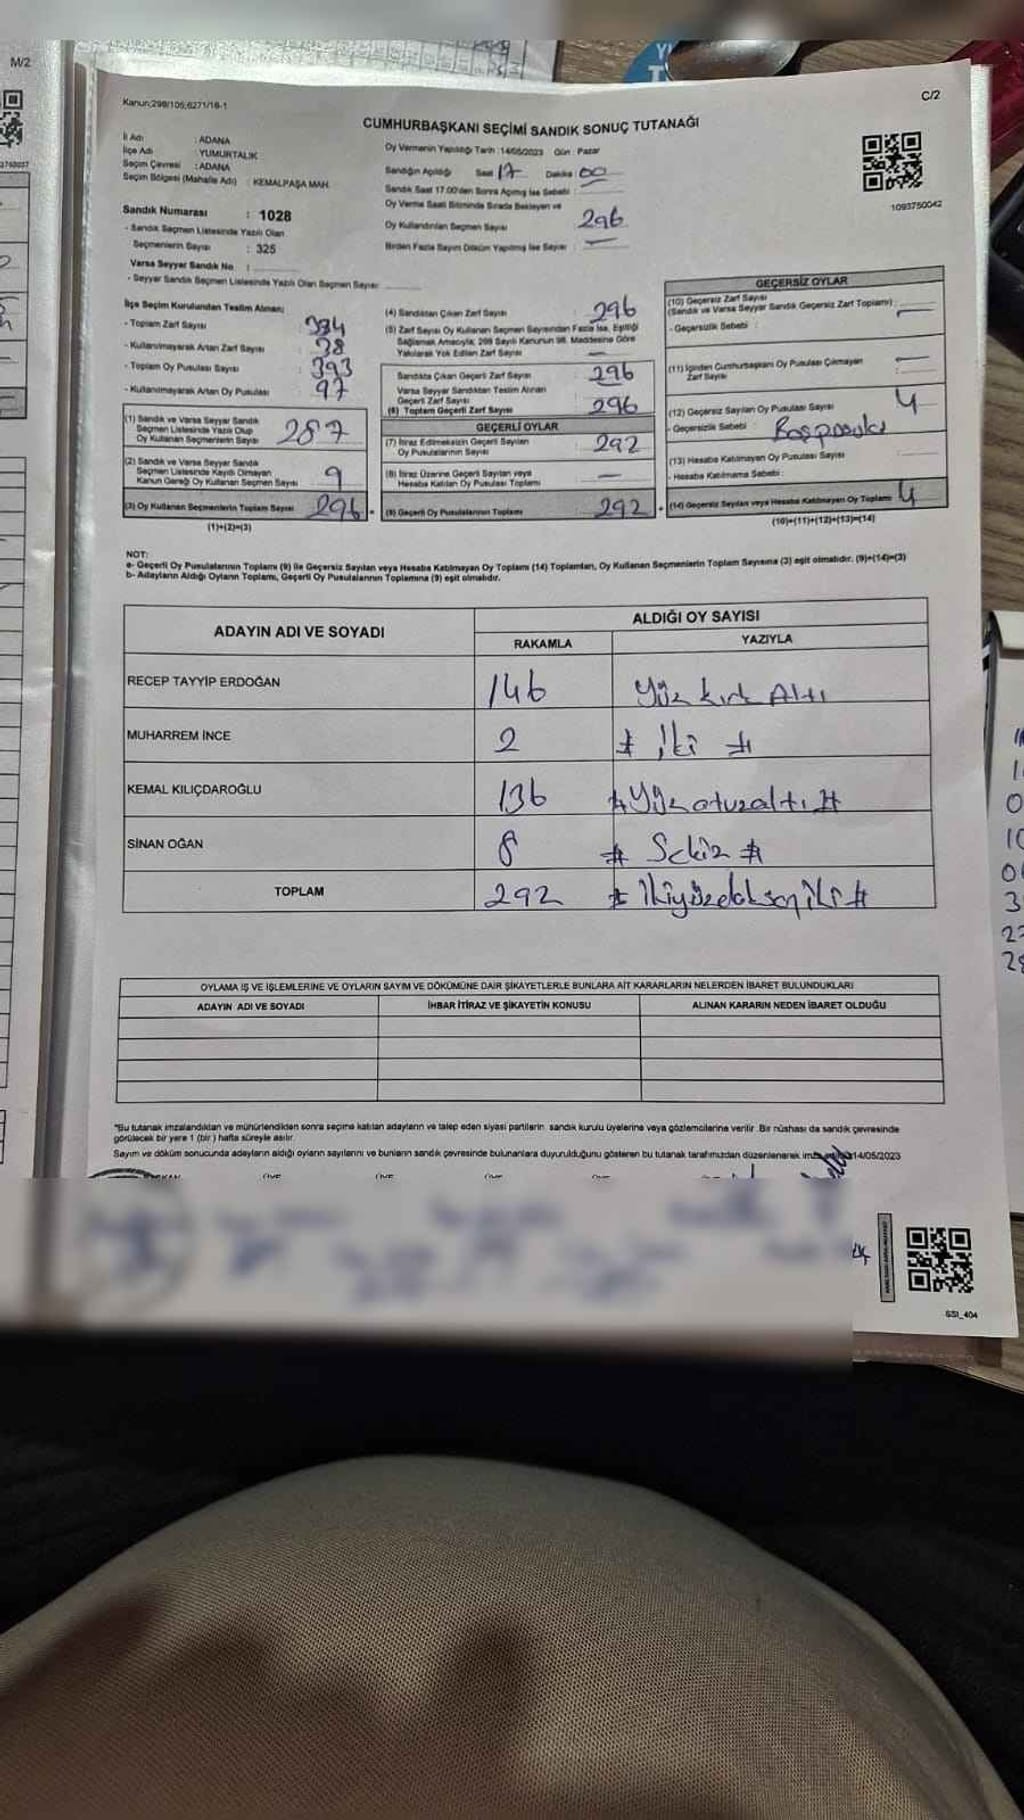 M/2
C/2
Kanun;298/105;6271/16-1
CUMHURBAŞKANI SEÇİMİ SANDIK SONUÇ TUTANAĞI
İl Adı : ADANA
İlçe Adı : YUMURTALIK
Seçim Çevresi : ADANA
Seçim Bölgesi (Mahalle Adı) : KEMALPAŞA MAH.
Sandık Numarası : 1028
- Sandık Seçmen Listesinde Yazılı Olan
Seçmenlerin Sayısı : 325
Varsa Seyyar Sandık No :
- Seyyar Sandık Seçmen Listesinde Yazılı Olan Seçmen Sayısı
Oy Vermenin Yapıldığı Tarih : 14/05/2023 Gün : Pazar
Sandığın Açıldığı Saat 17 Dakika 00
Sandık Saat 17.00'den Sonra Açılmış İse Sebebi :
Oy Verme Saati Bitiminde Sırada Bekleyen ve
Oy Kullandırılan Seçmen Sayısı : 296
Birden Fazla Sayım Döküm Yapılmış İse Sayısı : —
1093750042
İlçe Seçim Kurulundan Teslim Alınan;
- Toplam Zarf Sayısı : 334
- Kullanılmayarak Artan Zarf Sayısı : 38
- Toplam Oy Pusulası Sayısı : 393
- Kullanılmayarak Artan Oy Pusulası : 97
(1) Sandık ve Varsa Seyyar Sandık
Seçmen Listesinde Yazılı Olup
Oy Kullanan Seçmenlerin Sayısı 287
(2) Sandık ve Varsa Seyyar Sandık
Seçmen Listesinde Kaydı Olmayan
Kanun Gereği Oy Kullanan Seçmen Sayısı 9
(3) Oy Kullanan Seçmenlerin Toplam Sayısı 296
(1)+(2)=(3)
(4) Sandıktan Çıkan Zarf Sayısı : 296
(5) Zarf Sayısı Oy Kullanan Seçmen Sayısından Fazla İse, Eşitliği
Sağlamak Amacıyla; 298 Sayılı Kanunun 98. Maddesine Göre
Yakılarak Yok Edilen Zarf Sayısı : —
Sandıkta Çıkan Geçerli Zarf Sayısı : 296
Varsa Seyyar Sandıktan Teslim Alınan
Geçerli Zarf Sayısı
(6) Toplam Geçerli Zarf Sayısı 296
GEÇERLİ OYLAR
(7) İtiraz Edilmeksizin Geçerli Sayılan
Oy Pusulalarının Sayısı : 292
(8) İtiraz Üzerine Geçerli Sayılan veya
Hesaba Katılan Oy Pusulası Toplamı : —
(9) Geçerli Oy Pusulalarının Toplamı : 292
GEÇERSİZ OYLAR
(10) Geçersiz Zarf Sayısı
(Sandık ve Varsa Seyyar Sandık Geçersiz Zarf Toplamı) : —
- Geçersizlik Sebebi :
(11) İçinden Cumhurbaşkanı Oy Pusulası Çıkmayan
Zarf Sayısı : —
(12) Geçersiz Sayılan Oy Pusulası Sayısı : 4
- Geçersizlik Sebebi :
(13) Hesaba Katılmayan Oy Pusulası Sayısı :
- Hesaba Katılmama Sebebi :
(14) Geçersiz Sayılan veya Hesaba Katılmayan Oy Toplamı 4
(10)+(11)+(12)+(13)=(14)
NOT:
a- Geçerli Oy Pusulalarının Toplamı (9) ile Geçersiz Sayılan veya Hesaba Katılmayan Oy Toplamı (14) Toplamları, Oy Kullanan Seçmenlerin Toplam Sayısına (3) eşit olmalıdır. (9)+(14)=(3)
b- Adayların Aldığı Oyların Toplamı, Geçerli Oy Pusulalarının Toplamına (9) eşit olmalıdır.
ADAYIN ADI VE SOYADI
ALDIĞI OY SAYISI
RAKAMLA YAZIYLA
RECEP TAYYİP ERDOĞAN 146 Yüz kırk Altı
MUHARREM İNCE 2 # İki #
KEMAL KILIÇDAROĞLU 136 # Yüzotuzaltı #
SİNAN OĞAN 8 # Sekiz #
TOPLAM 292 # ikiyüzdoksaniki #
OYLAMA İŞ VE İŞLEMLERİNE VE OYLARIN SAYIM VE DÖKÜMÜNE DAİR ŞİKAYETLERLE BUNLARA AİT KARARLARIN NELERDEN İBARET BULUNDUKLARI
ADAYIN ADI VE SOYADI İHBAR İTİRAZ VE ŞİKAYETİN KONUSU ALINAN KARARIN NEDEN İBARET OLDUĞU
"Bu tutanak imzalandıktan ve mühürlendikten sonra seçime katılan adayların ve talep eden siyasi partilerin sandık kurulu üyelerine veya gözlemcilerine verilir. Bir nüshası da sandık çevresinde
görülecek bir yere 1 (bir) hafta süreyle asılır.
Sayım ve döküm sonucunda adayların aldığı oyların sayılarını ve bunların sandık çevresinde bulunanlara duyurulduğunu gösteren bu tutanak tarafımızdan düzenlenerek 14/05/2023
GSI_404